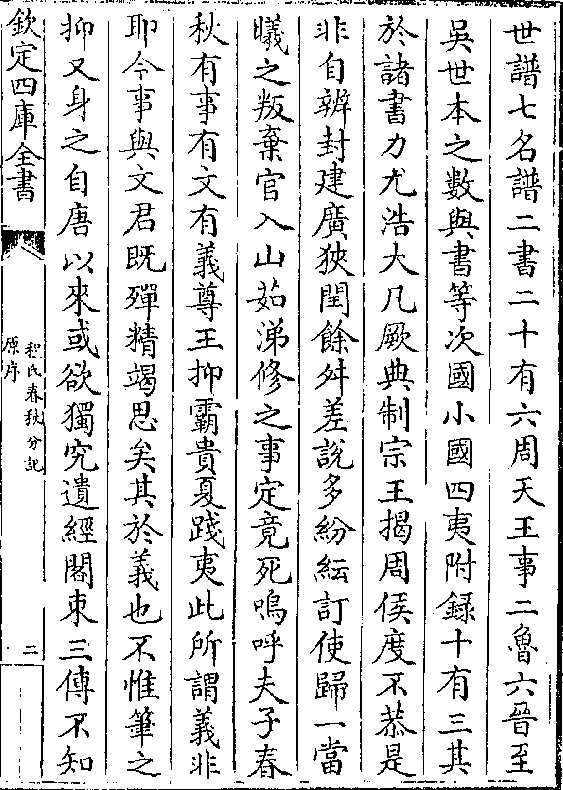 世譜七名譜二書二十有六周天王事二魯六晉至
吳世本之數與書等次國小國四夷附録十有三其
於諸書力尤浩大凡厥典制宗王揭周侯度不恭是
非自辨封建廣狹閏餘舛差說多紛紜訂使歸一當
曦之叛棄官入山茹涕修之事定竟死嗚呼夫子春
秋有事有文有義尊王抑霸貴夏賤夷此所謂義非
耶今事與文君既殫精竭思矣其於義也不惟筆之
抑又身之自唐以來或欲獨究遺經閣束三傳不知
欽定四庫全書
程氏春秋分記
原序
二